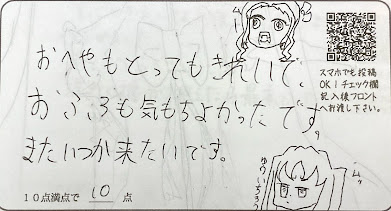 おへやもとってもきれいで、
おふろも気もちよかったです。
またいつか来たいです。
スマホでも投稿
OK!チェック欄
記入後フロント
へお渡し下さい。
ゆういちろう
10点満点で 10 点